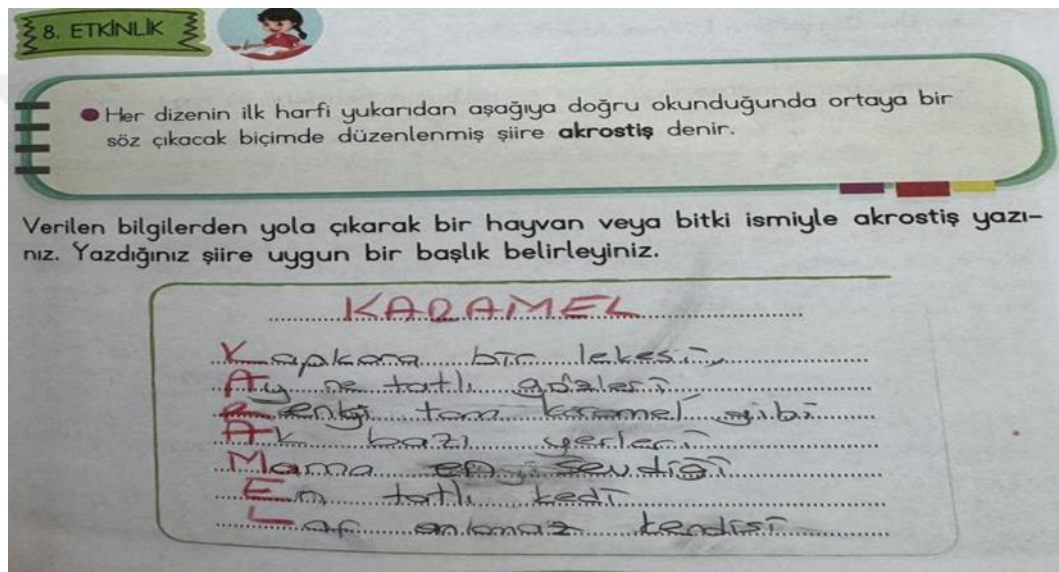 8. ETKİNLİK
Her dizenin ilk harfi yukarıdan aşağıya doğru okunduğunda ortaya bir
söz çıkacak biçimde düzenlenmiş şiire akrostiş denir.
Verilen bilgilerden yola çıkarak bir hayvan veya bitki ismiyle akrostiş yazı-
nız. Yazdığınız şiire uygun bir başlık belirleyiniz.
KARAMEL
Kapkara bir lekesi,
Ay ne tatlı gözleri
Rengi tam karamel gibi
Ak bazı yerleri
Mama en sevdiği
En tatlı kedi
Laf anlamaz kendisi